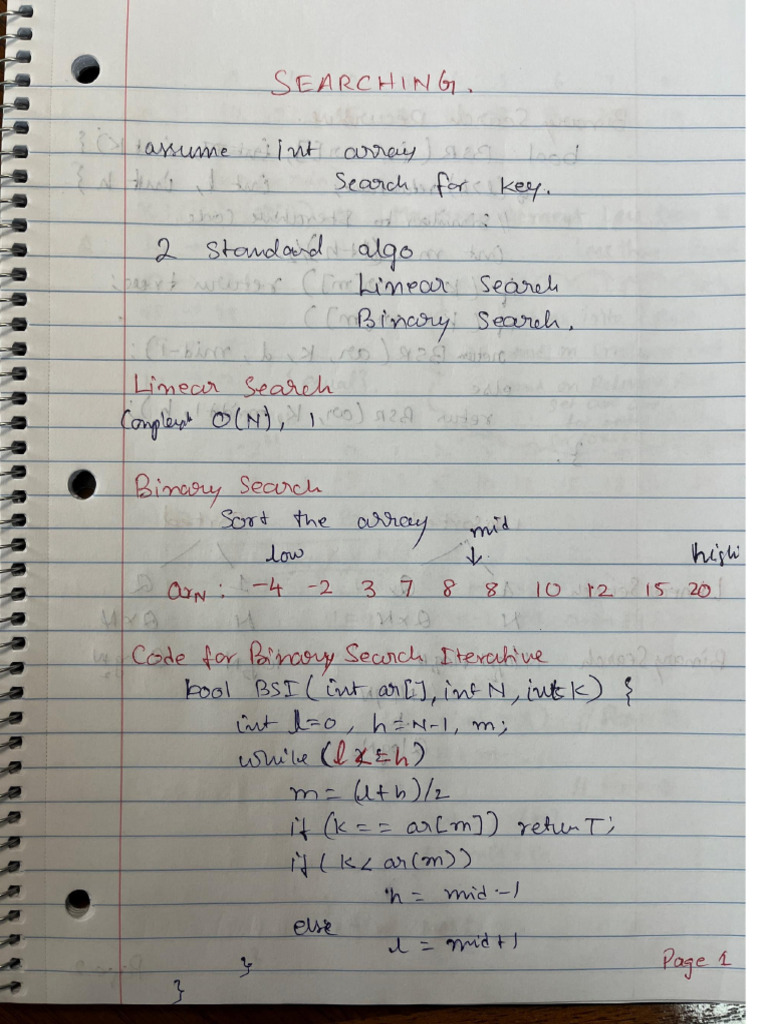 SEARCHING.
assume int array
Search for key.
2 standard algo
Linear Search
Binary Search.
Linear Search
O(N), 1
Binary Search
Sort the array
mid
low
high
arN : -4 -2 3 7 8 8 10 12 15 20
Code for Binary Search Iterative
bool BSI(int ar[], int N, int K) {
int l=0, h=N-1, m;
while (l<=h)
m=(l+h)/2
if (k== ar[m]) return T;
if (k< ar(m))
h= mid-1
else
l = mid+1
}
}
Page 1